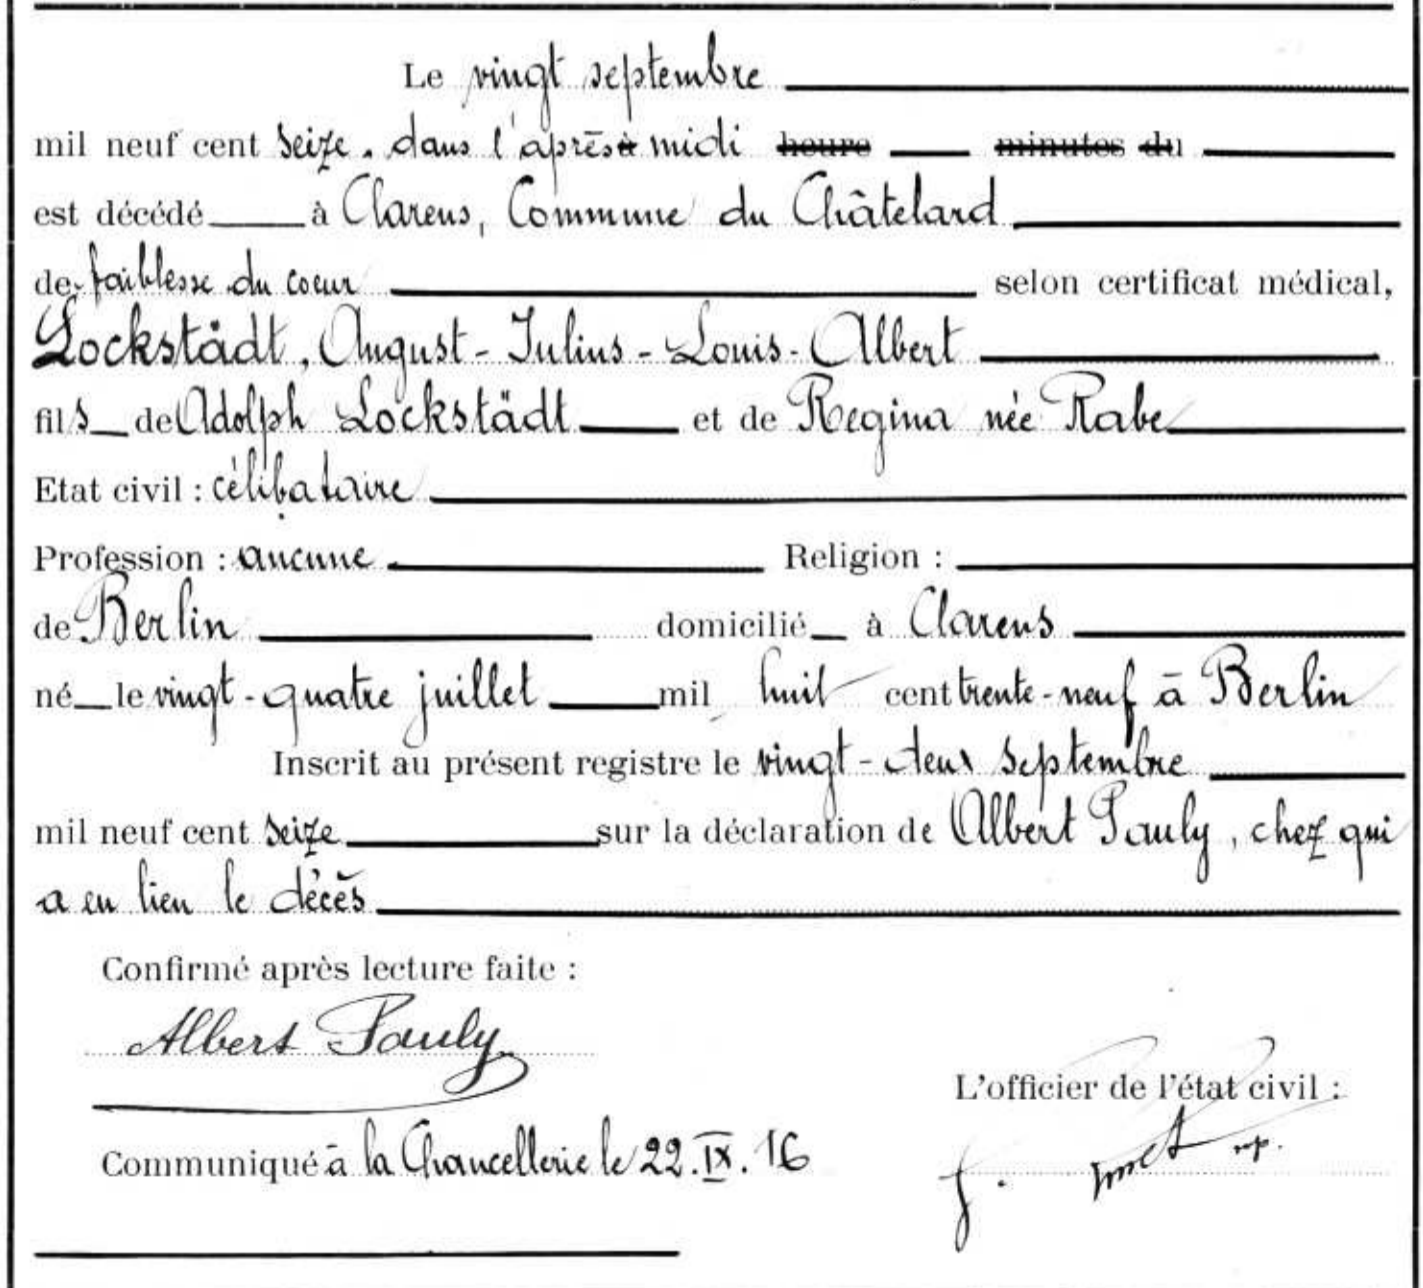 Le vingt septembre
mil neuf cent seize. dans l'après à midi heure minutes du
est décédé à Clarens, Commune du Châtelard
de faiblesse du coeur selon certificat médical,
Lockstädt, August-Julius-Louis-Albert
fils de Adolph Lockstädt et de Regina née Rabe
Etat civil : célibataire
Profession : aucune Religion :
de Berlin domicilié à Clarens
né le vingt-quatre juillet mil huit cent trente-neuf à Berlin
Inscrit au présent registre le vingt-deux septembre
mil neuf cent seize sur la déclaration de Albert Pauly, chez qui
a eu lieu le décès
Confirmé après lecture faite :
Albert Pauly
L'officier de l'état civil :
Communiqué à la Chancellerie le 22.IX.16